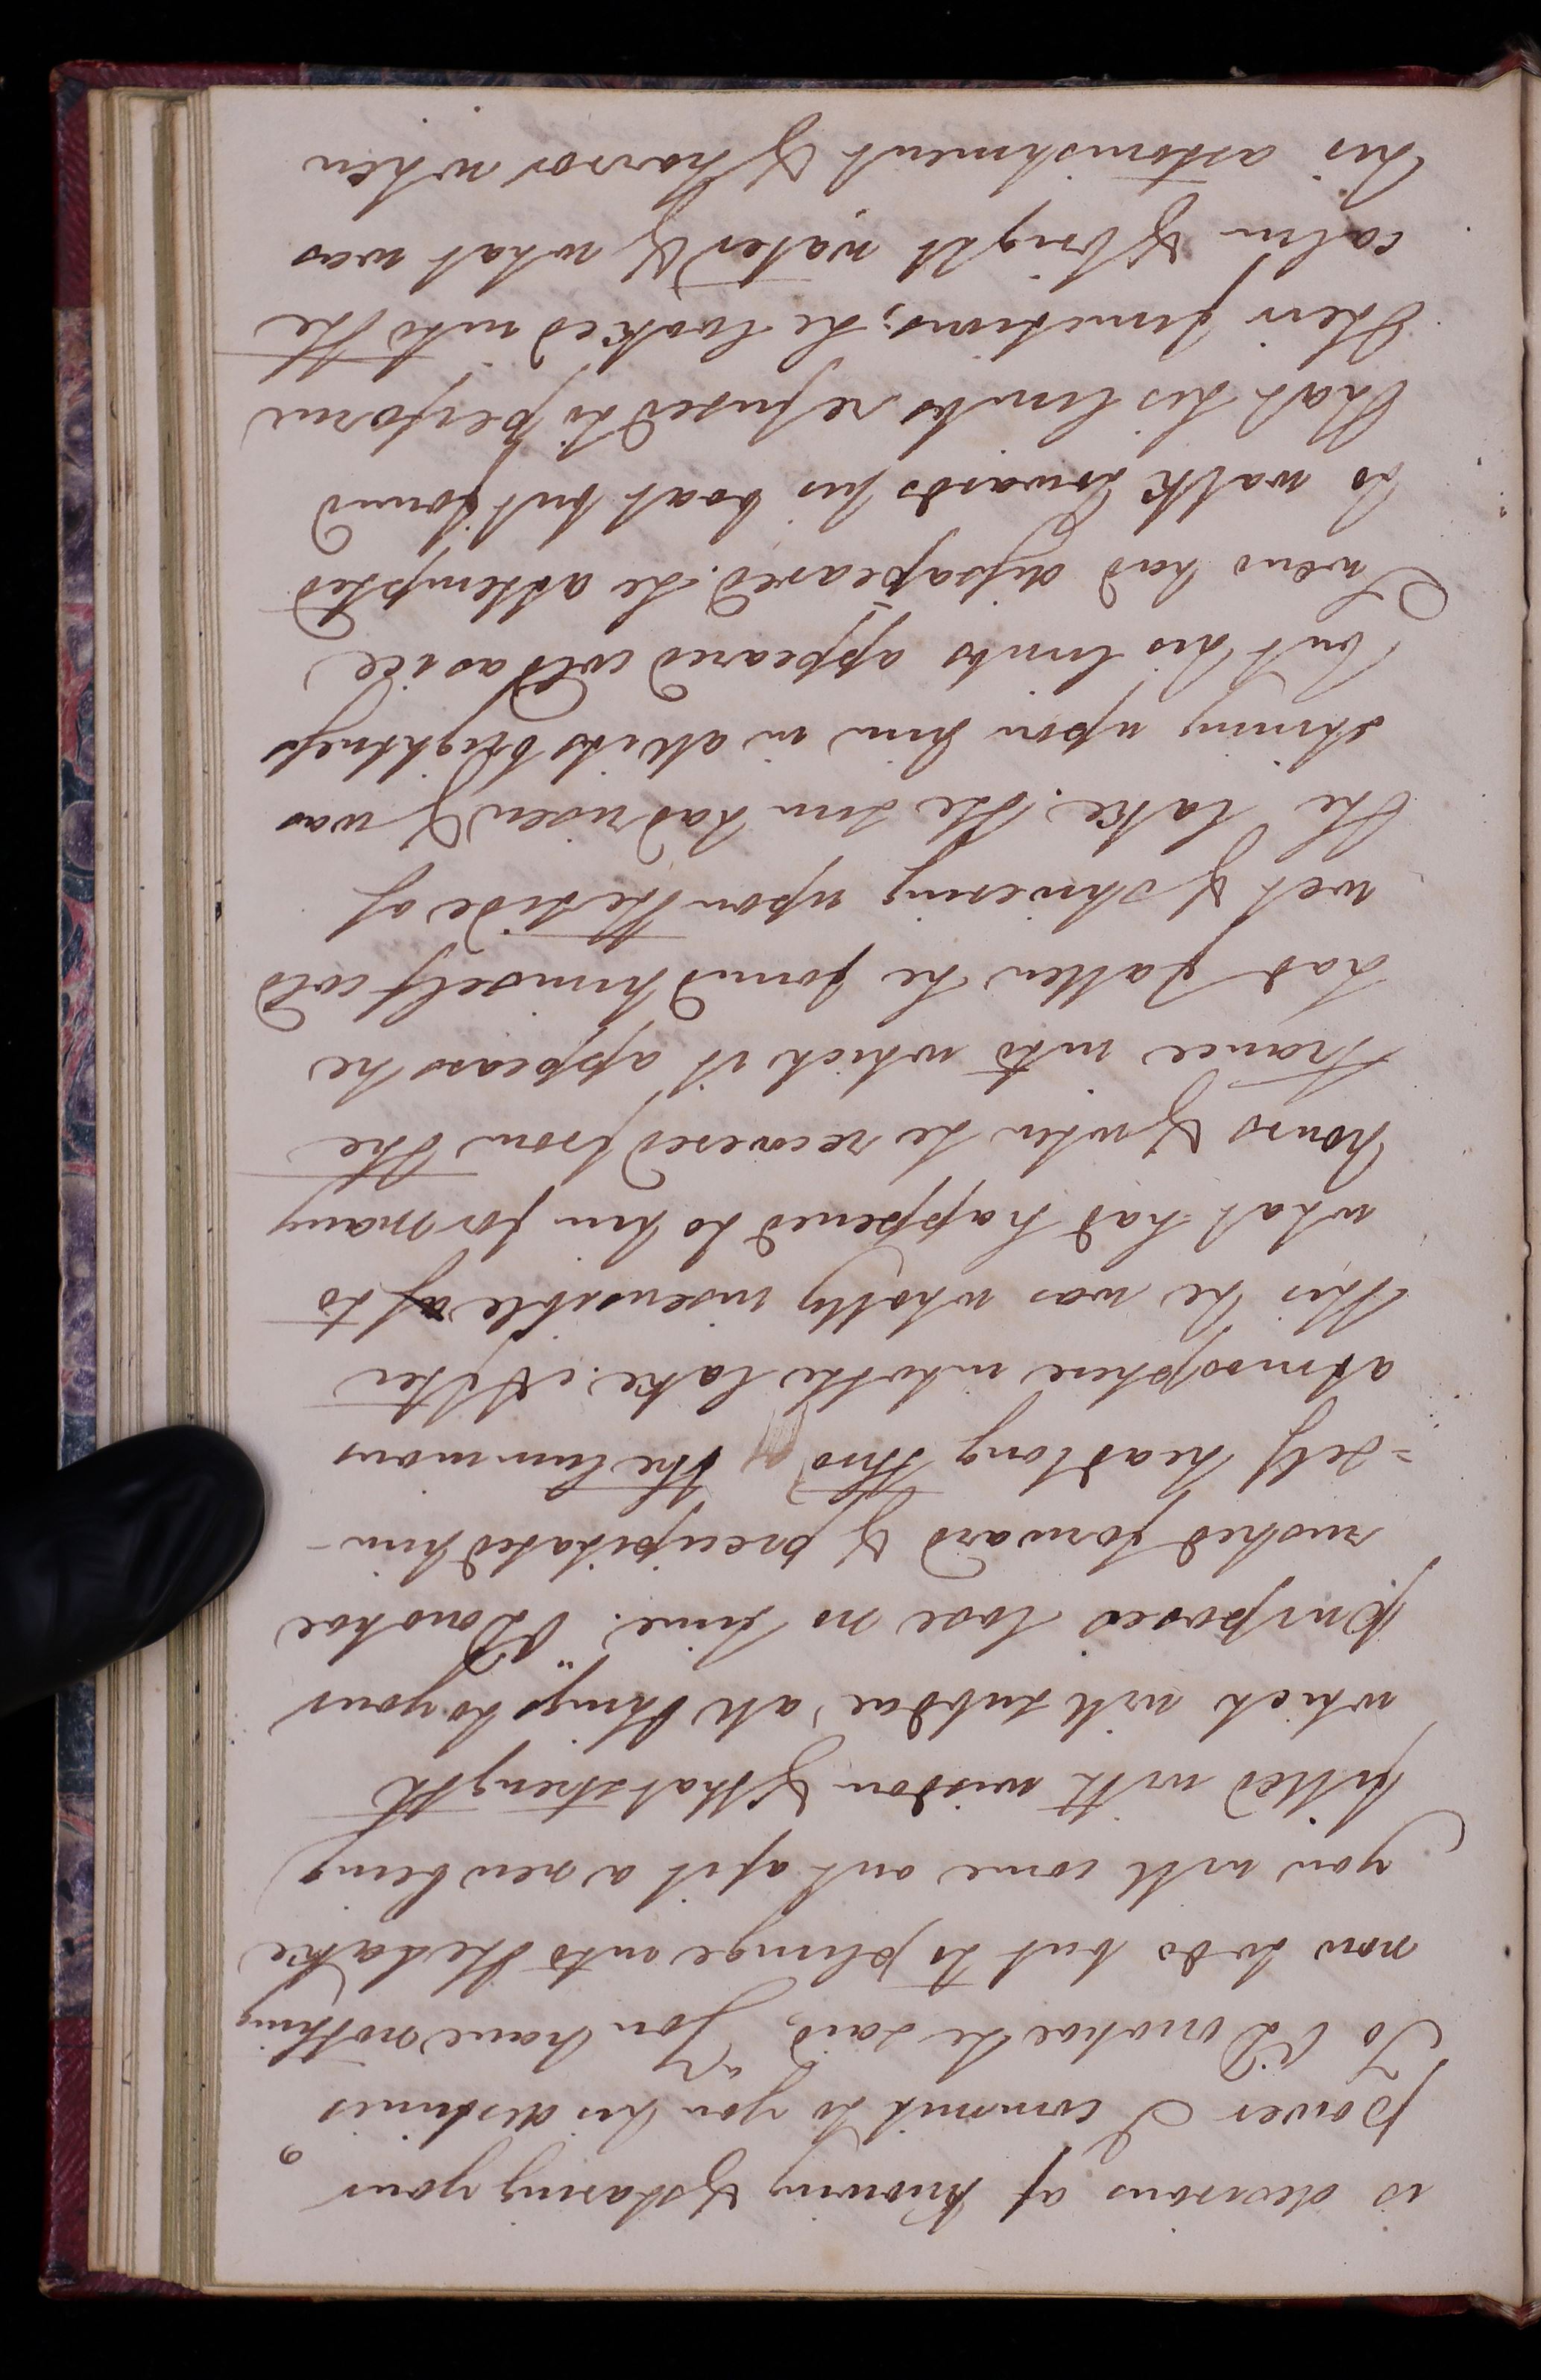 is desirous of knowing & sharing your
power I commit to you his destinies"
To O'Donohoe he said, "You have nothing
now to do but to plunge into the Lake
you will come out of it a new being
filled with wisdom & that strength
which will subdue all things to your
purposes lose no time." O'Donohoe
rushed forward & precipitated him-
=self headlong thro' the luminous
atmosphere into the lake. After
this he was wholly insensible of to
what had happened to him for many
hours & when he recovered from the
trance into which it appears he
had fallen he found himself cold
wet & shivering upon the side of
the lake. The sun had risen & was
shining upon him in all its brightness
but his limbs appeared cold as ice
Swans had disapeared. he attempted
to walk towards his boat but found
that his limbs refused to perform
their functions; he looked into the
calm & bright water & what was
his astonishment & horror when